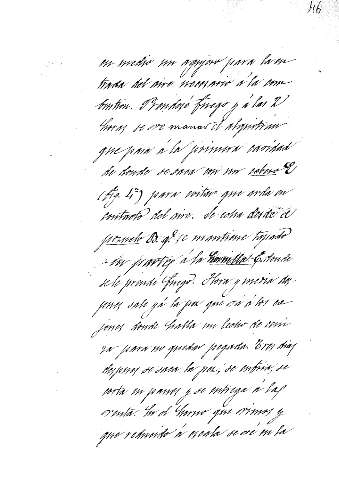 46
en medio un agujero para la en
trada del aire necesario á la com
bustion. Prendese fuego y á las 2
horas se ve manar el alquitrán
que pasa á la primera cavidad
de donde se saca con un
(fig 4ª) para evitar que arda en
contacto del aire. Se echa desde el
pozuelo q.e se mantiene tapado
á la donde
se le prende fuego. Hora y media des
pues sale ya la pez que va á los ca
jones donde halla un lecho de ceni
za para no quedar pegada. Tres dias
despues se saca la pez, se enfria, se
corta en panes y se entrega á las
venta. En el horno que vimos y
que reducido á escala se vé en la